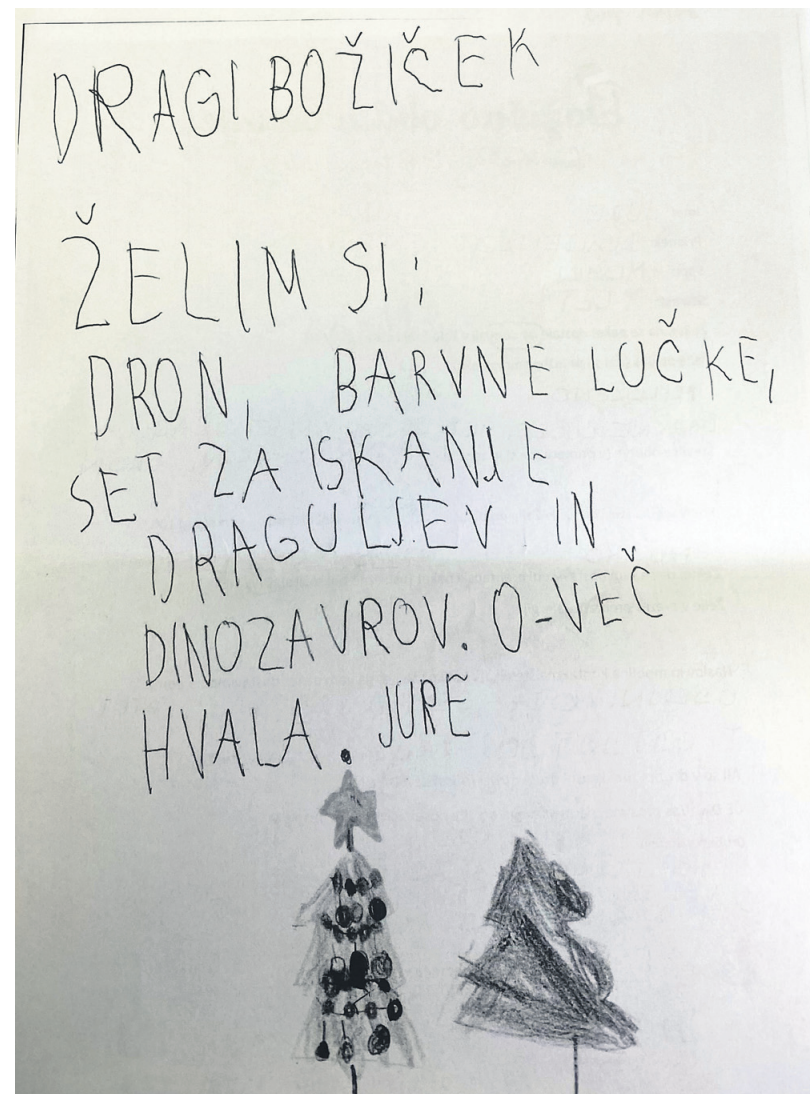 DRAGI BOŽIČEK
ŽELIM SI;
DRON, BARVNE LUČKE,
SET ZA ISKANJE
DRAGULJEV IN
DINOZAVROV. O-VEČ
HVALA. JURE